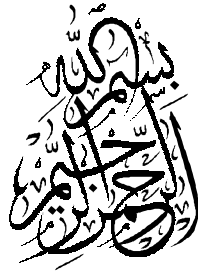 بِسْمِ اللّٰهِ
الرَّحْمٰنِ الرَّحِيمِ